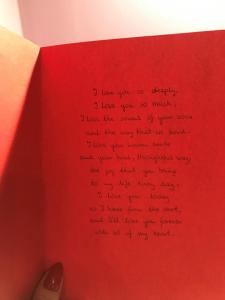 I love you so deeply,
I love you so much,
I love the sound of your voice
and the way that we touch.
I love your warm smile
and your kind, thoughtful way,
the joy that you bring
to my life every day.
I love you today
as I have from the start,
and I'll love you forever
with all of my heart.